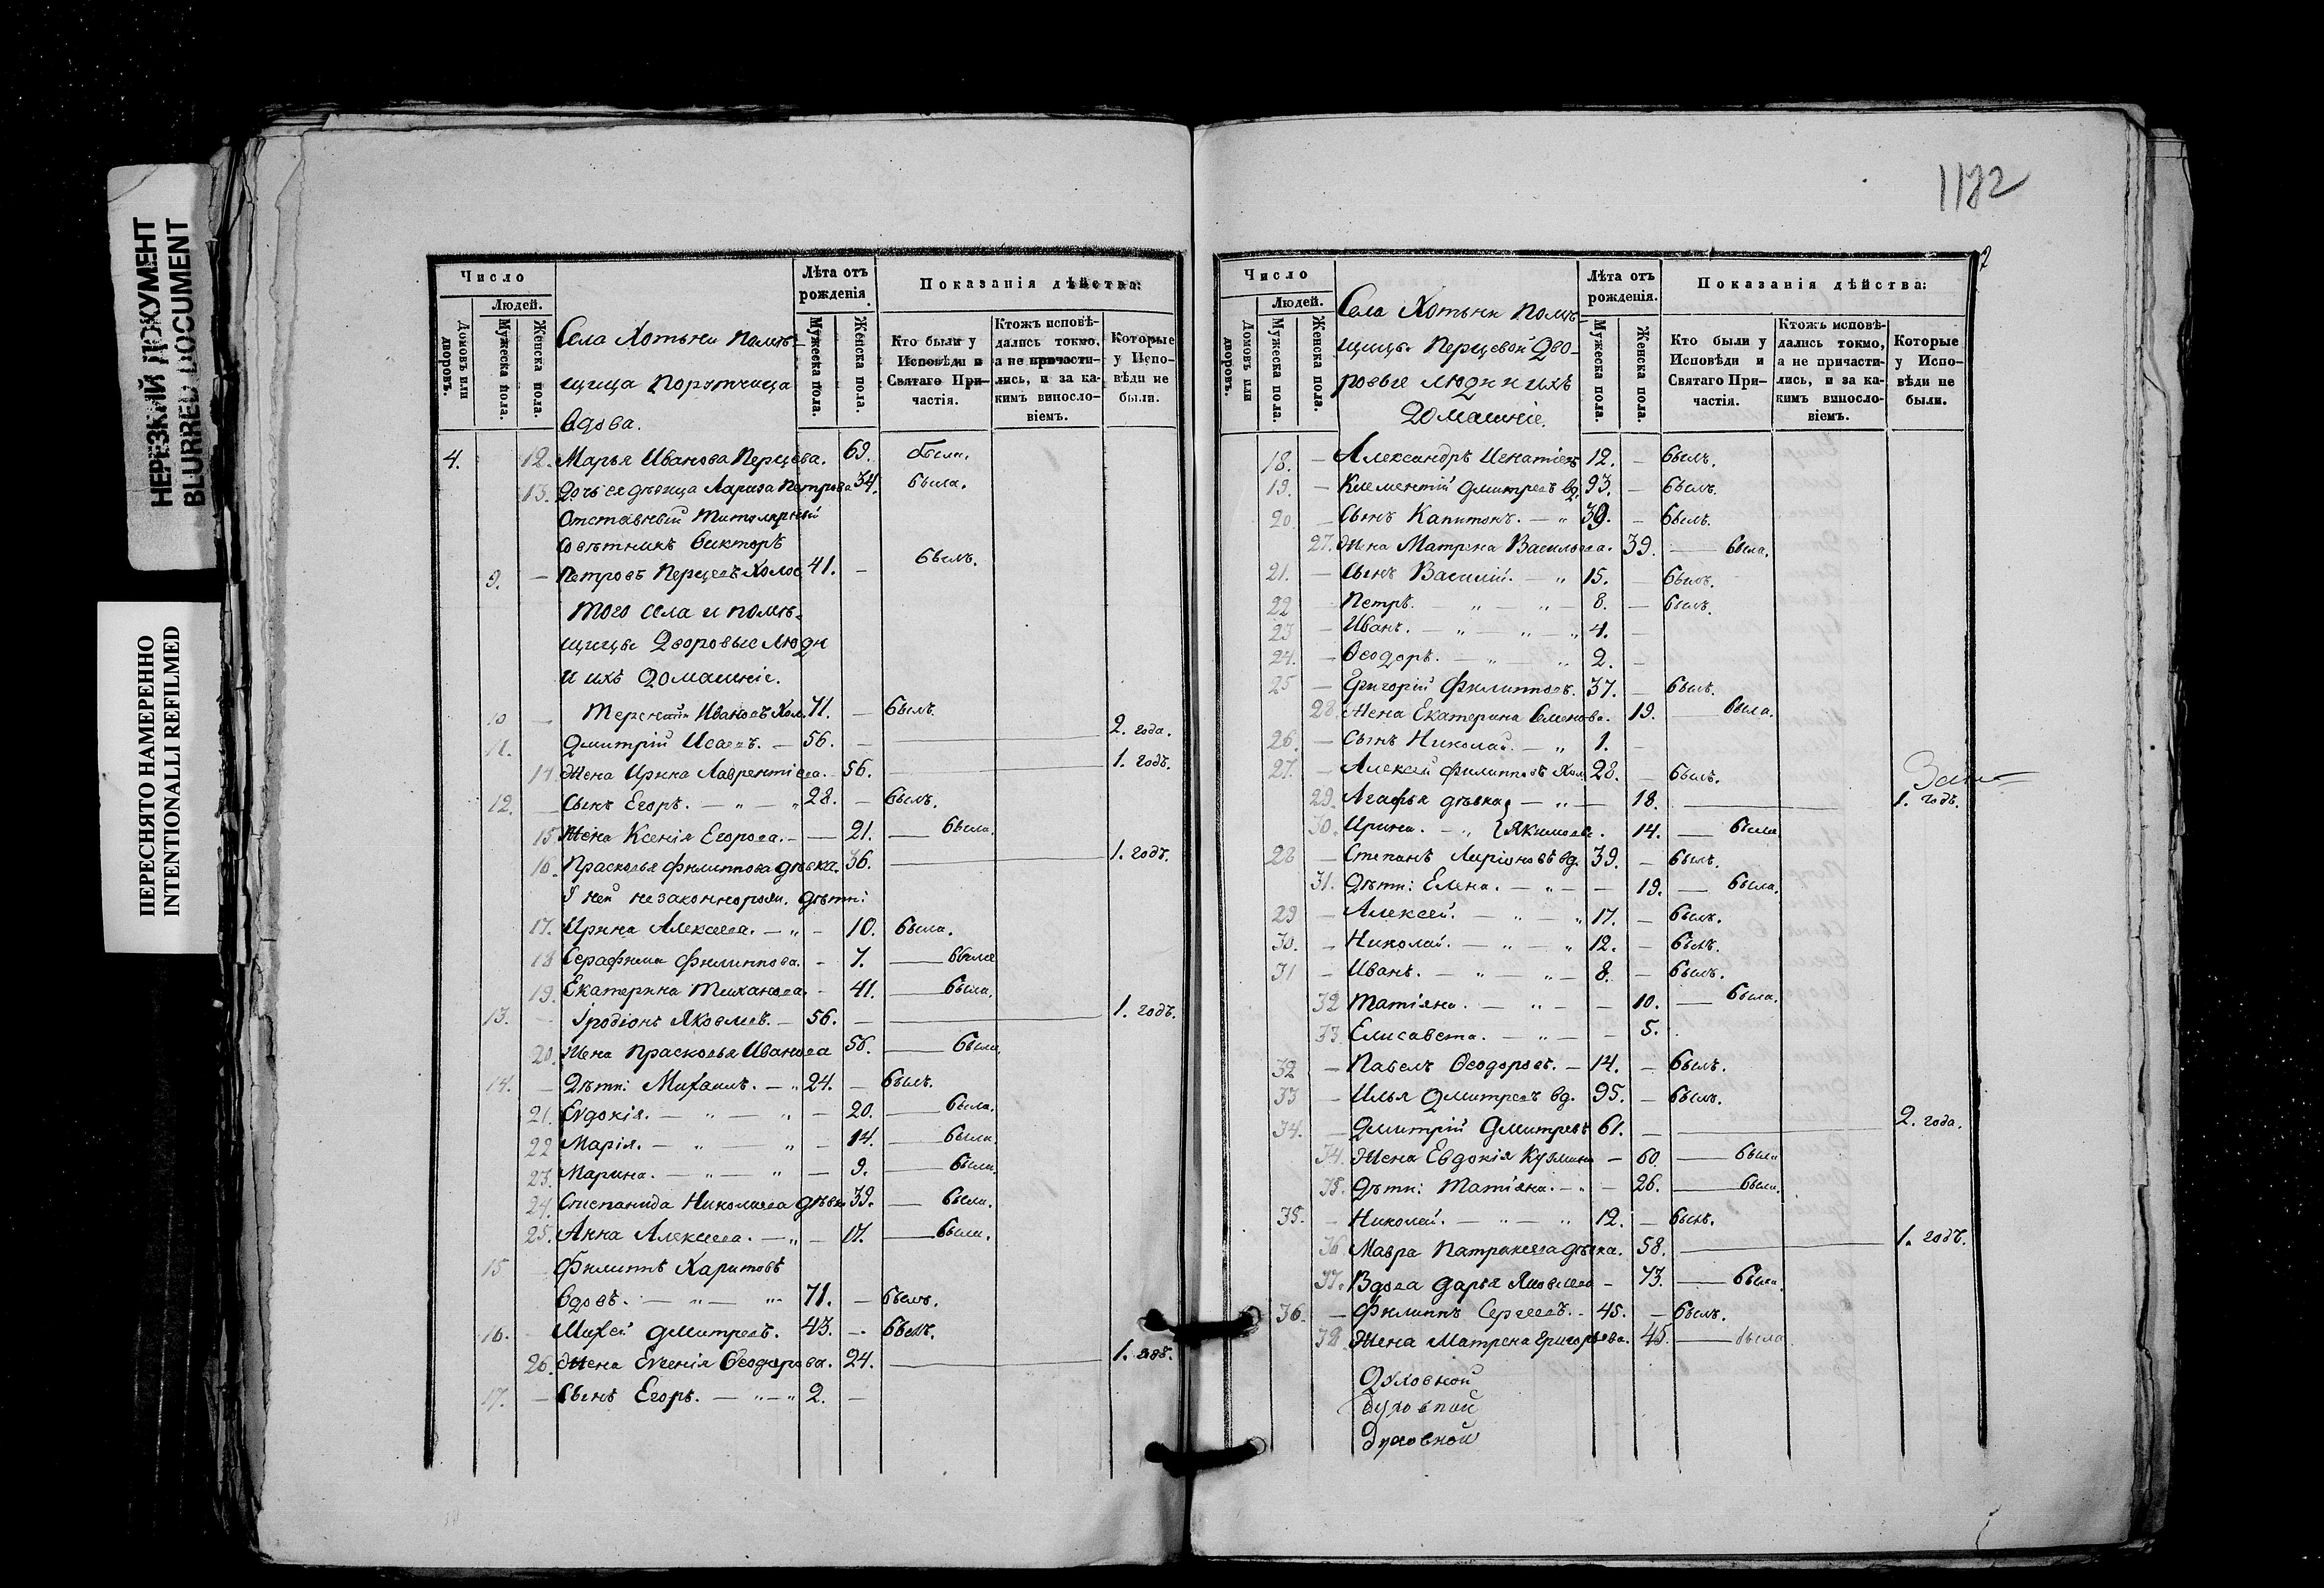 НЕРЕЗКИЙ ДОКУМЕНТ
BLURRED DOCUMENT
ПЕРЕСНЯТО НАМЕРЕННО
INTENTIONALLI REFILMED
Число
Людей.
Домовъ или дворовъ.
Мужеска пола.
Женска пола.
Села Хотыни помѣ-
щица порутчица
вдова.
Лѣта отъ рожденія
Мужеска пола.
Женска пола.
Показанія дѣйства:
Кто были у Исповѣди и Святаго При-частія.
Ктожъ исповѣ-дались токмо, а не причасти-лись, и за ка-кимъ винословіемъ.
Которые у Испо-вѣди не были.
4. 12. Марья Иванова Перцева. 69. была.
13. Дочь ея дѣвица Лариса Петрова 34. была.
Отставный титулярный
совѣтникъ Викторъ
9. — Петровъ Перцевъ Холос. 41. — былъ.
Того села и помѣ-
щицы Дворовые люди
и ихъ домашніе.
10 — Терентій Ивановъ Хол. 71. — былъ.
11. Дмитрій Исаевъ. — 56. — 2. года.
14. Жена Ирина Лаврентіева. — 56. — 1. годъ.
12. — Сынъ Егоръ. — „ — „ 28. — былъ.
15. Жена Ксенія Егорова. — — 21. — была.
16. Прасковья Филиппова дѣвка. 36. — 1. годъ.
У ней незаконнорож. дѣти:
17. Ирина Алексеева. — „ — 10. была.
18 Серафима Филиппова. — 7. — была
19. Екатерина Тиханова. — 41. — была.
13. — Іродіонъ Яковлевъ. — 56. — 1. годъ.
20. Жена Прасковья Иванова 56. — была.
14. — Дѣти: Михаилъ. — „ 24. — былъ.
21. Евдокія. — „ — „ — 20. — была.
22 Марія. — „ — „ — 14. — была.
23. Марина. — „ — „ — 9. — была.
24. Степанида Николаева дѣвка 39. — была.
25. Анна Алексеева. — „ — 17. — была.
15 Филиппъ Харитовъ
вдовъ. — „ — „ 71. — былъ.
16. — Михей Дмитревъ. 43. — былъ.
26. Жена Евгенія Ѳеодорова. 24. — 1. годъ.
17. — Сынъ Егоръ. — „ — „ 2. —
1172
2
Число
Людей.
Домовъ или дворовъ.
Мужеска пола.
Женска пола.
Села Хотыни помѣ-
щицы Перцевой Дво-
ровые люди и ихъ
Домашніе.
Лѣта отъ рожденія.
Мужеска пола.
Женска пола.
Показанія дѣйства:
Кто были у Исповѣди и Святаго При-частія.
Ктожъ исповѣ-дались токмо, а не причасти-лись, и за ка-кимъ винословіемъ.
Которые у Испо-вѣди не были.
18. — Александръ Игнатіевъ 12. — былъ.
19. — Климентій Дмитревъ вд. 93. — былъ.
20. — Сынъ Капитонъ. — „ 39. — былъ.
27. Жена Матрена Васильева. 39. — была.
21. — Сынъ Василій. — „ 15. — былъ.
22 — Петръ. — „ — „ — 8. — былъ.
23 — Иванъ. — „ — „ — „ 4. —
24. — Ѳеодоръ. — „ — „ 2. —
25 — Григорій Филипповъ. 37. — былъ.
28. Жена Екатерина Семенова. 19. — была.
26. — Сынъ Николай. — „ 1. —
27. — Алексѣй Филипповъ Хол. 28. — былъ.
29. Агафья дѣвка — „ — 18. — 1. годъ.
30. Ирина. — „ Якимова. 14. — была
28 — Степанъ Ларіоновъ вд. 39. — былъ.
31. Дѣти: Елена. — „ — — 19. — была.
29 — Алексей. — „ — „ 17. — былъ.
30. — Николай. — „ — „ 12. — былъ.
31 — Иванъ. — „ — „ — 8. — былъ.
32 Татіяна. — „ — — 10. — была.
33. Елисавета. — „ — — 5.
32 — Павелъ Ѳеодоровъ. — 14. — былъ.
33 — Илья Дмитревъ вд. 95. — былъ.
34. — Дмитрій Дмитревъ 61. — 2. года.
34. Жена Евдокія Кузмина — 60. — была
35. Дѣти: Татіяна. — „ — 26. — была.
35. — Николай. — „ — „ 12. — былъ.
36 Мавра Патракеева дѣвка. 58. — 1. годъ.
37. Вдова Дарья Яковлева — 73. — была.
36. — Филиппъ Сергеевъ. — 45. — былъ.
38. Жена Матрена Григорьева. 45. — была
Духовной
духовной
духовной